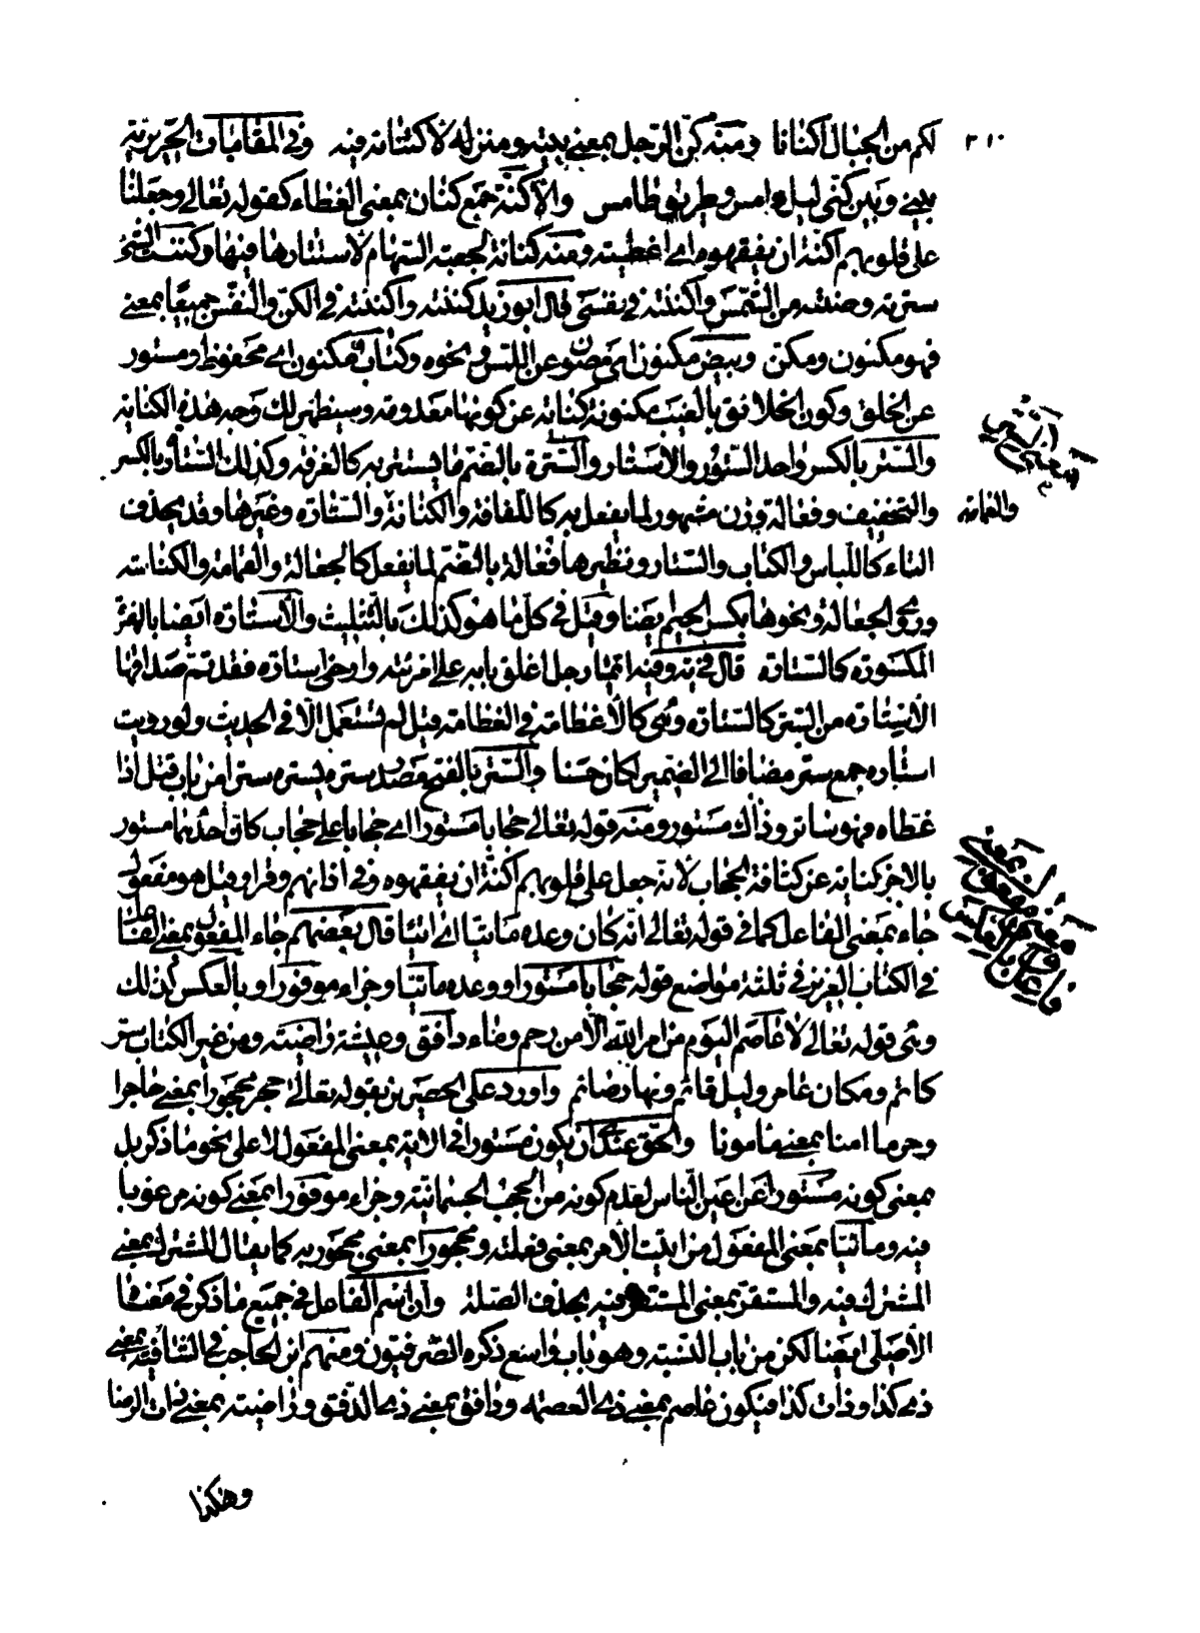 ٣١٠
لكم من الجبال اكنانا ومنه كنّ الرّجل بمعنى بيته ومنزله لاكتنانه فيه وفى المقامات الحريريّة
بينى وبين كنّى ليل دامس وطريق طامس والاكنّة جمع كنان بمعنى الغطاء كقوله تعالى وجعلنا
على قلوبهم اكنّة ان يفقهوه اى اغطية ومنه كنانة لجعبة السّهام لاستتارها فيها وكننت الشّئ
سترته وصنته من الشّمس واكننته فى نفسى قال ابو زيد كننته واكننته فى الكنّ والنّفس جميعا بمعنى
فهو مكنون ومكنّ وبيض مكنون اى مصون عن اللّمس ونحوه وكتاب مكنون اى محفوظ ومستور
عن الخلق وكون الخلائق بالغيب مكنونة كناية عن كونها معدومة وسيظهر لك وجه هذه الكناية
والسّتر بالكسر واحد السّتور والاستار والسّترة بالضّم ما يستتر به كالغرفة وكذلك السّتار بالكسر
والتّخفيف وفعالة وزن مشهور لما يفعل به كاللّفافة والكنانة والسّتارة وغيرها وقد يحذف
والعمامة
التاء كاللّباس والكتاب والسّتار ونظيرها فعالة بالضّم لما يفعل كالجعالة والقمامة والكناسة
وروى الجعالة ونحوها بكسر الجيم ايضا وقيل فى كلّ ما هو كذلك بالتّثليث والاستارة ايضا بالهمزة
المكسورة كالسّتارة قال فى يه وفيه ايّما رجل اغلق بابه على امرئته وارخى استارة فقد تمّ صداقها
الاستارة من السّتر كالسّتارة وهى كالاعظامة فى العظامة قيل لم تستعمل الّا فى الحديث ولو رويت
استاره جمع ستر مضافا الى الضّمير لكان حسنا والسّتر بالفتح مصدر ستره يستره سترا من باب قتل اذا
غطّاه فهو ساتر وذاك مستور ومنه قوله تعالى حجابا مستورا اى حجابا على حجاب كان احدهما مستور
بالاخر كناية عن كثافة الحجاب لانه جعل على قلوبهم اكنّة ان يفقهوه وفى اذانهم وقرا وقيل هو مفعول
جاء بمعنى الفاعل كما فى قوله تعالى انّه كان وعده ماتيّا اى اتيا قال بعضهم جاء المفعول بمعنى الفاعل
فى الكتاب العزيز فى ثلثة مواضع قوله حجابا مستورا ووعده ماتيّا وجزاء موفورا وبالعكس كذلك
وهى قوله تعالى لا عاصم اليوم من امر الله الّا من رحم وماء دافق وعيشة راضية ومن غير الكتاب سرّ
كاتم ومكان عامر وليل قائم ونهار صائم واورد على الحصرين بقوله تعالى حجرا محجورا بمعنى حاجرا
وحرما امنا بمعنى مامونا والحقّ عندى ان يكون مستورا فى الاية بمعنى المفعول لا على نحو ما ذكر بل
بمعنى كونه مستورا عن اعين النّاس لعدم كونه من الحجب الجسمانيّة وجزاء موفورا بمعنى كونه مرغوبا
فيه وماتيّا بمعنى المفعول من اتيت الامر بمعنى فعلته ومحجورا بمعنى محجور به كما يقال المشترك بمعنى
المشترك فيه والمستقرّ بمعنى المستقرّ فيه بحذف الصّلة وانّ اسم الفاعل فى جميع ما ذكر فى معناه
الاصلى ايضا لكن من باب النّسبة وهو باب واسع ذكره الصّرفيّون ومنهم ابن الحاجب فى الشّافية بمعنى
ذى كذا وذات كذا فيكون عاصم بمعنى ذى العصمة ودافق بمعنى ذى الدّفق وراضية بمعنى ذات الرضا
وهكذا